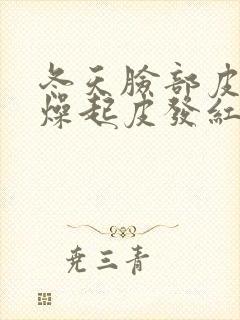 冬天臉部皮
燥起皮發紅
尭三青